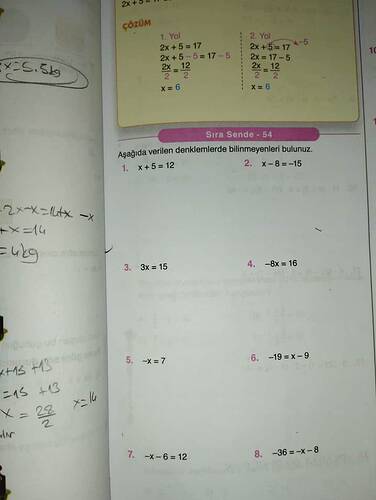 ÇÖZÜM
1. Yol
2x + 5 = 17
2x + 5 – 5 = 17 – 5
2x/2 = 12/2
x = 6
2. Yol
2x + 5 = 17 –5
2x = 17 – 5
2x/2 = 12/2
x = 6
Sıra Sende - 54
Aşağıda verilen denklemlerde bilinmeyenleri bulunuz.
1. x + 5 = 12
2. x – 8 = –15
3. 3x = 15
4. –8x = 16
5. –x = 7
6. –19 = x – 9
7. –x – 6 = 12
8. –36 = –x – 8
x=5.5kg
2x-x=14+x -x
+x=14
=4kg
x+15 +13
=15 +13
x = 28/2 x=14